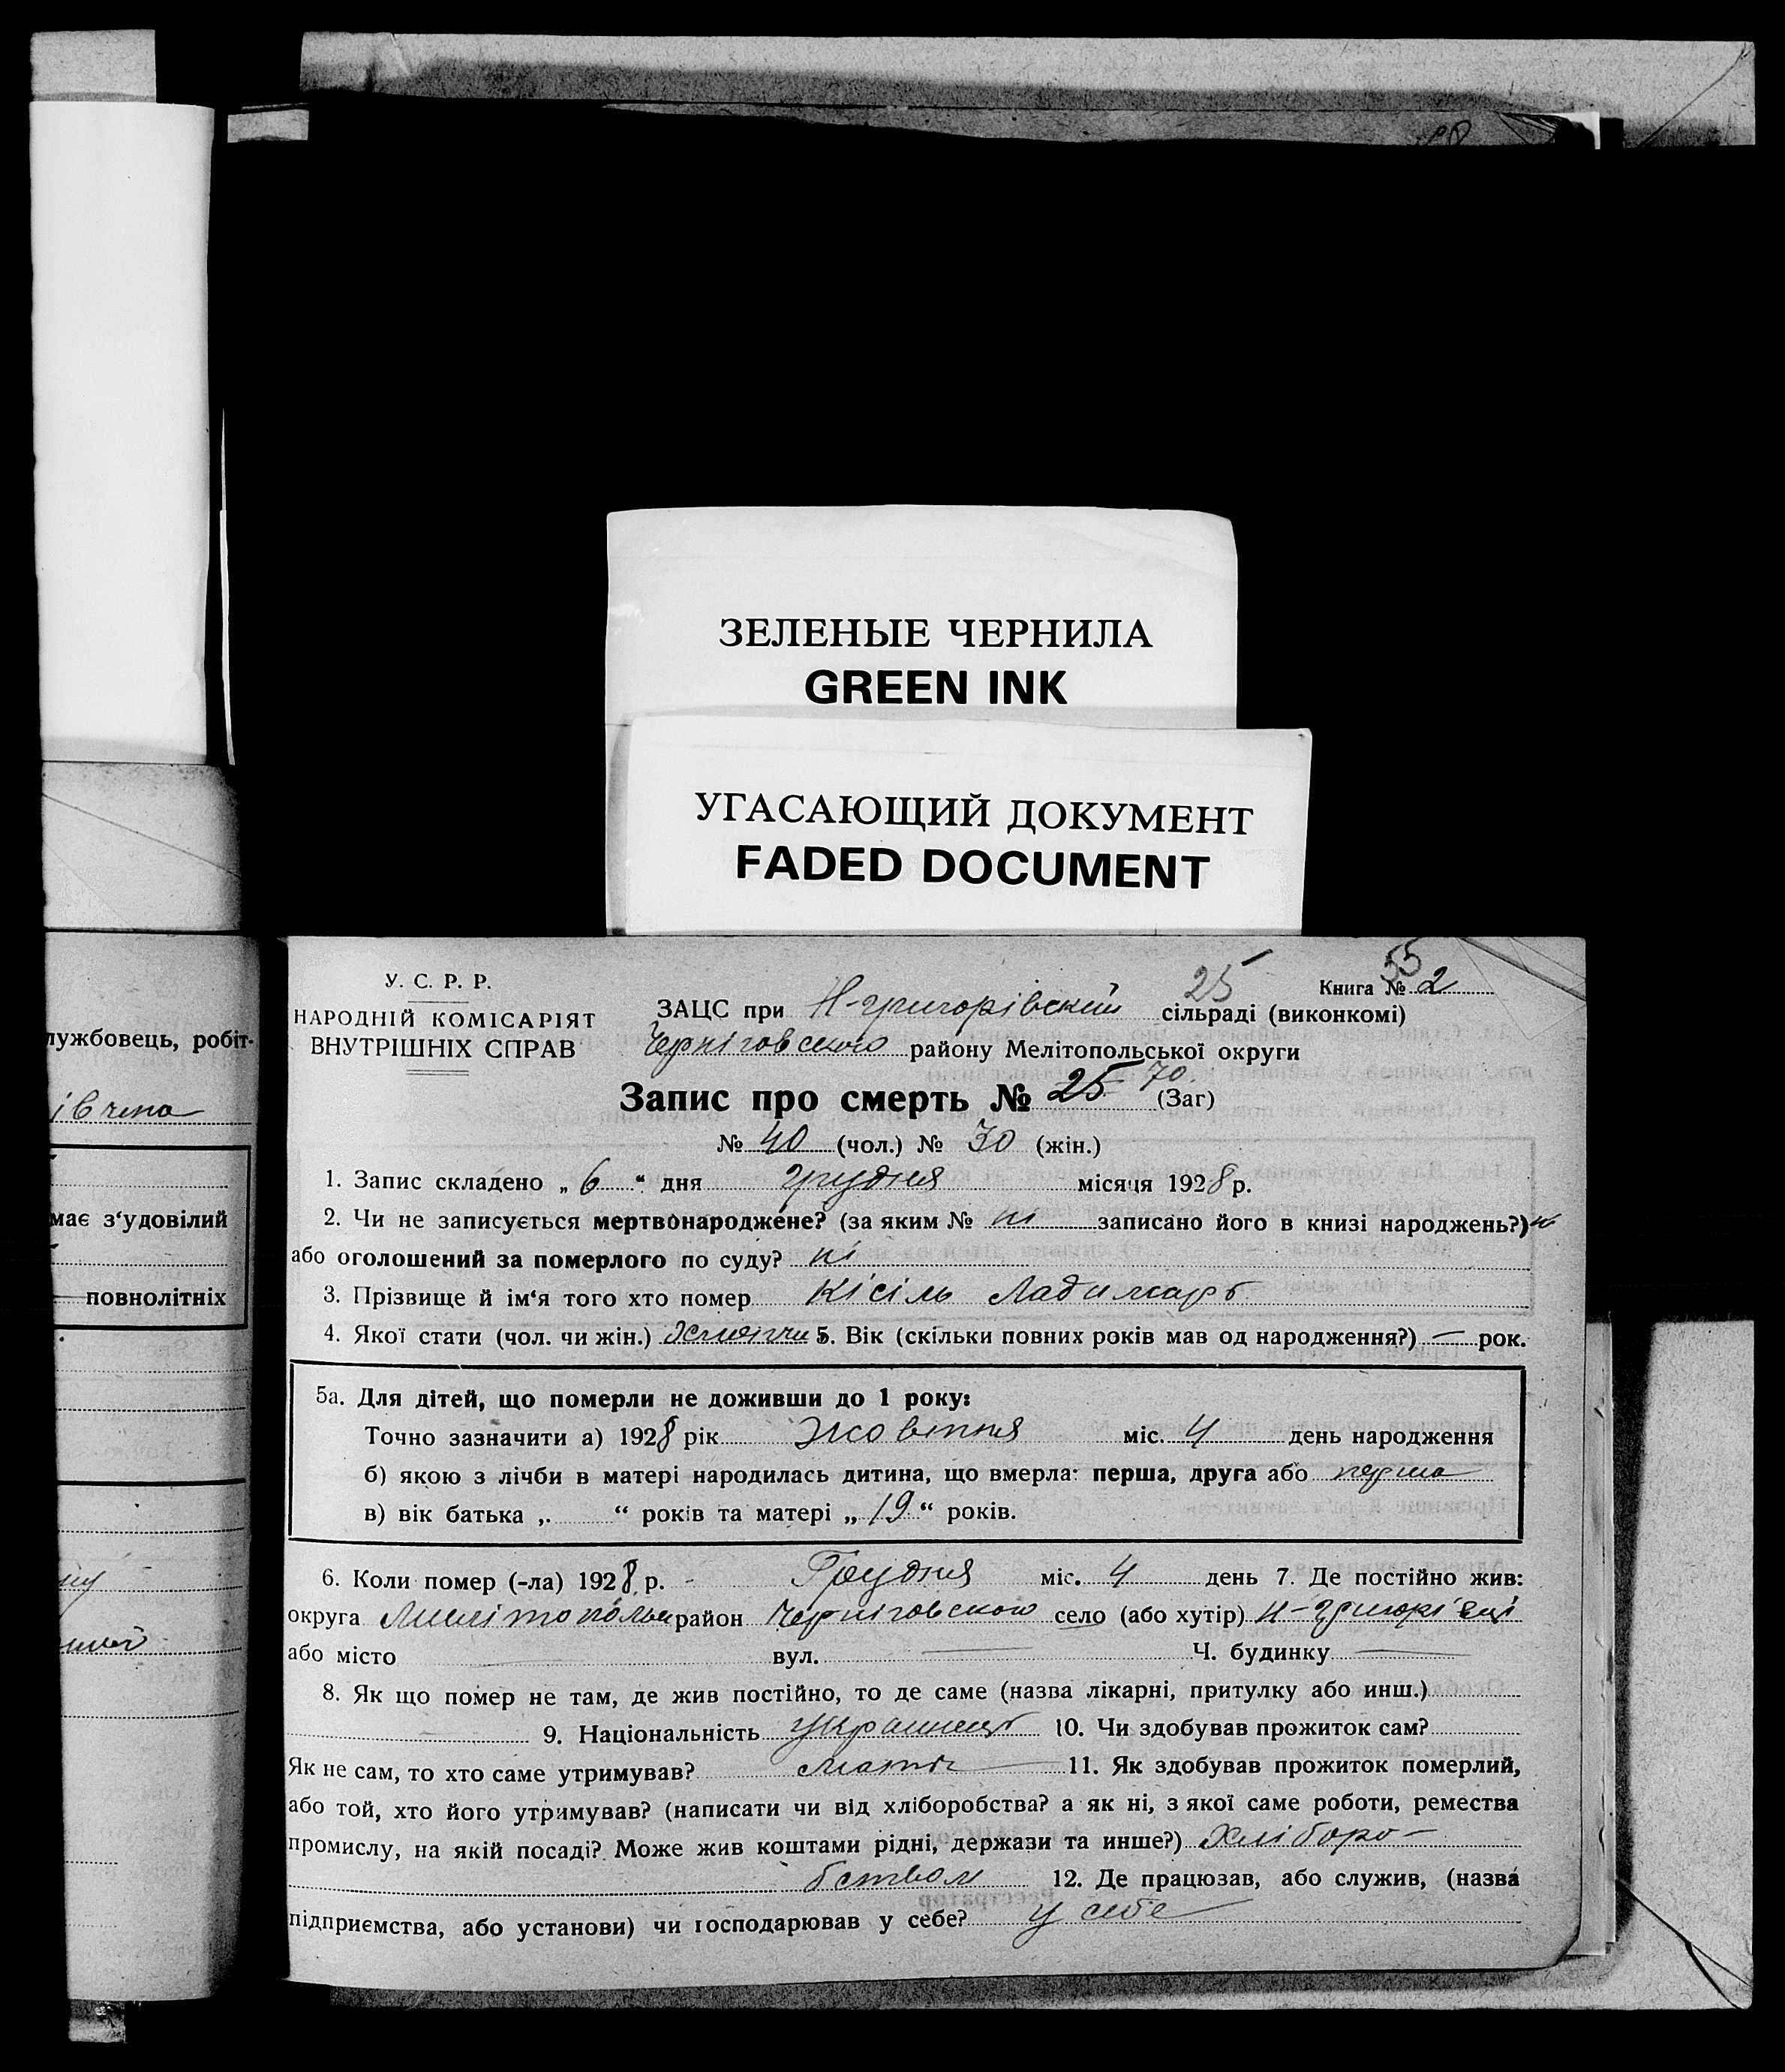 ЗЕЛЕНЫЕ ЧЕРНИЛА
GREEN INK
УГАСАЮЩИЙ ДОКУМЕНТ
FADED DOCUMENT
лужбовець, робіт-
івчена
має з‘удовілий
повнолітніх
55
У. С. Р. Р.
25
Книга № 2
НАРОДНІЙ КОМІСАРІЯТ
ВНУТРІШНІХ СПРАВ
ЗАЦС при Н-григорівській сільраді (виконкомі)
Черніговського району Мелітопольської округи
Запис про смерть № 25 70. (Заг)
№ 40 (чол.) № 30 (жін.)
1. Запис складено „ 6 “ дня грудня місяця 1928 р.
2. Чи не записується мертвонароджене? (за яким № ні записано його в книзі народжень?) ні
або оголошений за померлого по суду? ні
3. Прізвище й ім‘я того хто помер Кісіль Ладимарь
4. Якої стати (чол. чи жін.) 5. Вік (скільки повних років мав од народження?) — рок.
5а. Для дітей, що померли не доживши до 1 року:
Точно зазначити а) 1928 рік Жовтня міс. 4 день народження
б) якою з лічби в матері народилась дитина, що вмерла: перша, друга або перша
в) вік батька „ “ років та матері „ 19 “ років.
6. Коли помер (-ла) 1928 р. - Грудня міс. 4 день 7. Де постійно жив:
округа район Черніговського село (або хутір) Н-григорівці
або місто вул. Ч. будинку
8. Як що помер не там, де жив постійно, то де саме (назва лікарні, притулку або инш.)
9. Національність украинець 10. Чи здобував прожиток сам?
Як не сам, то хто саме утримував? мать 11. Як здобував прожиток померлий,
або той, хто його утримував? (написати чи від хліборобства? а як ні, з якої саме роботи, ремества
промислу, на якій посаді? Може жив коштами рідні, держави та инше?) Хліборо-
бством 12. Де працював, або служив, (назва
підприємства, або установи) чи господарював у себе? у себе